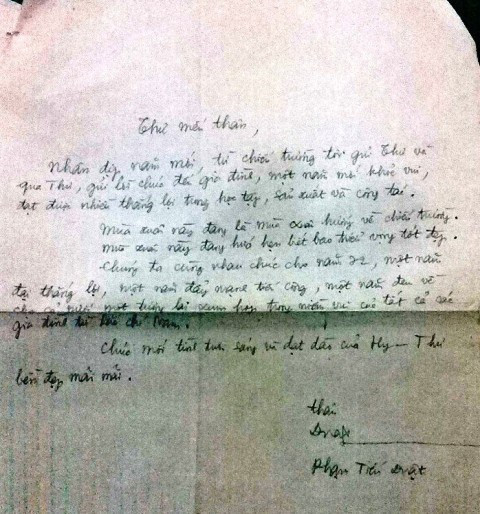 Thư mến thân,
Nhân dịp năm mới, từ chiến trường tôi gửi Thư và
qua Thư, gửi lời chúc đến gia đình, một năm mới khỏe vui,
đạt được nhiều thắng lợi trong học tập, sản xuất và công tác.
Mùa xuân này đang là mùa xuân hướng về chiến trường.
Mùa xuân này đang hứa hẹn biết bao triển vọng tốt đẹp.
Chúng ta cùng nhau chúc cho năm 72, một năm
đại thắng lợi, một năm đẩy mạnh tiến công, một năm đem về
cho cả nước một tương lai sum họp trong niềm vui của tất cả các
gia đình
Chúc mối tình tươi sáng và dạt dào của Hy - Thư
bền đẹp mãi mãi.
thân
Duật
Phạm Tiến Duật